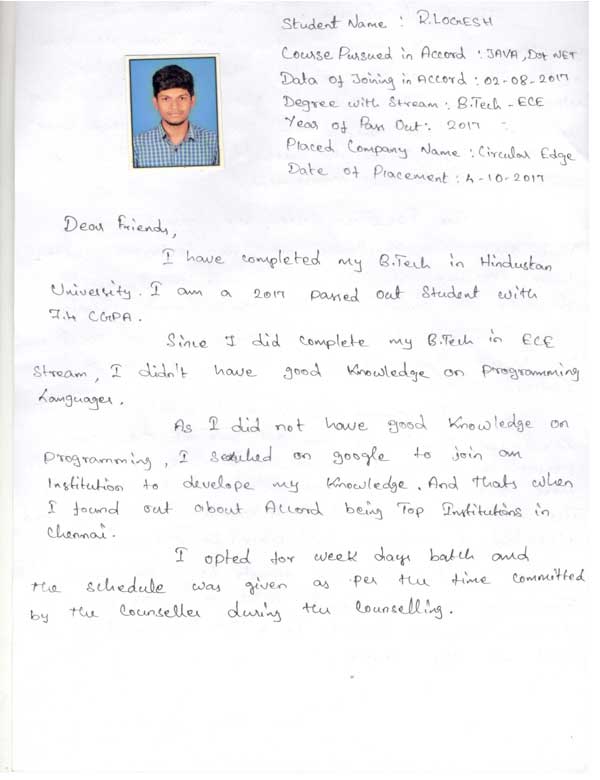 Student Name : R.LOGNESH
Course Pursued in Accord : JAVA, Dot NET
Data of Joining in Accord : 02-08-2017
Degree with Stream : B.Tech - ECE
Year of Pass Out : 2017
Placed Company Name : Circular Edge
Date of Placement : 4-10-2017
Dear Friends,
I have completed my B.Tech in Hindustan
University. I am a 2017 passed out Student with
7.4 CGPA.
Since I did complete my B.Tech in ECE
Stream, I didn't have good Knowledge on Programming
Languages.
As I did not have good Knowledge on
Programming, I searched on google to join an
Institution to develope my Knowledge. And thats when
I found out about Accord being Top Institutions in
Chennai.
I opted for week days batch and
the schedule was given as per the time committed
by the Counseller during the Counselling.